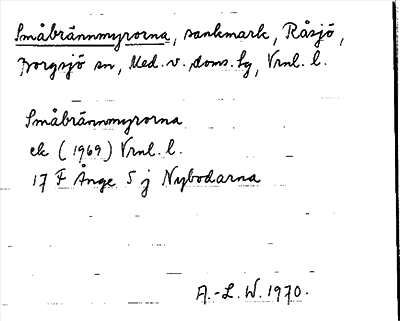 Småbrännmyrorna, sankmark, Råsjö,
Borgsjö sn, Med. v. doms. lg, Vrnl. l.
Småbrännmyrorna
ek (1969) Vrnl. l.
17 F Ånge 5 j Nybodarna
A.-L. W. 1970.